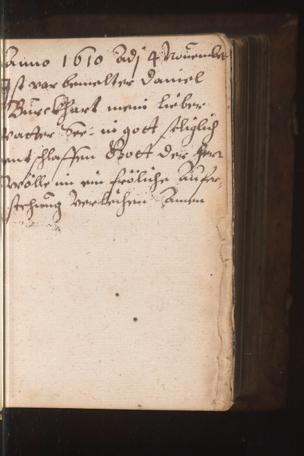 Anno 1610 Adj 4 Nouember
Ist vor bemelter Daniel
Burckhart mein lieber
vatter See: in gott seliglich
entschlaffen Gott der Herr
wölle im ein fröliche Aufer
stehung verleihen Amen